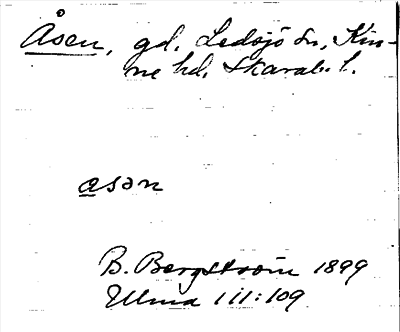 Åsen, gd. Ledsjö sn, Kin-
ne hd. Skarab. l.
asən
B. Bergström 1899
Ulma 111:109